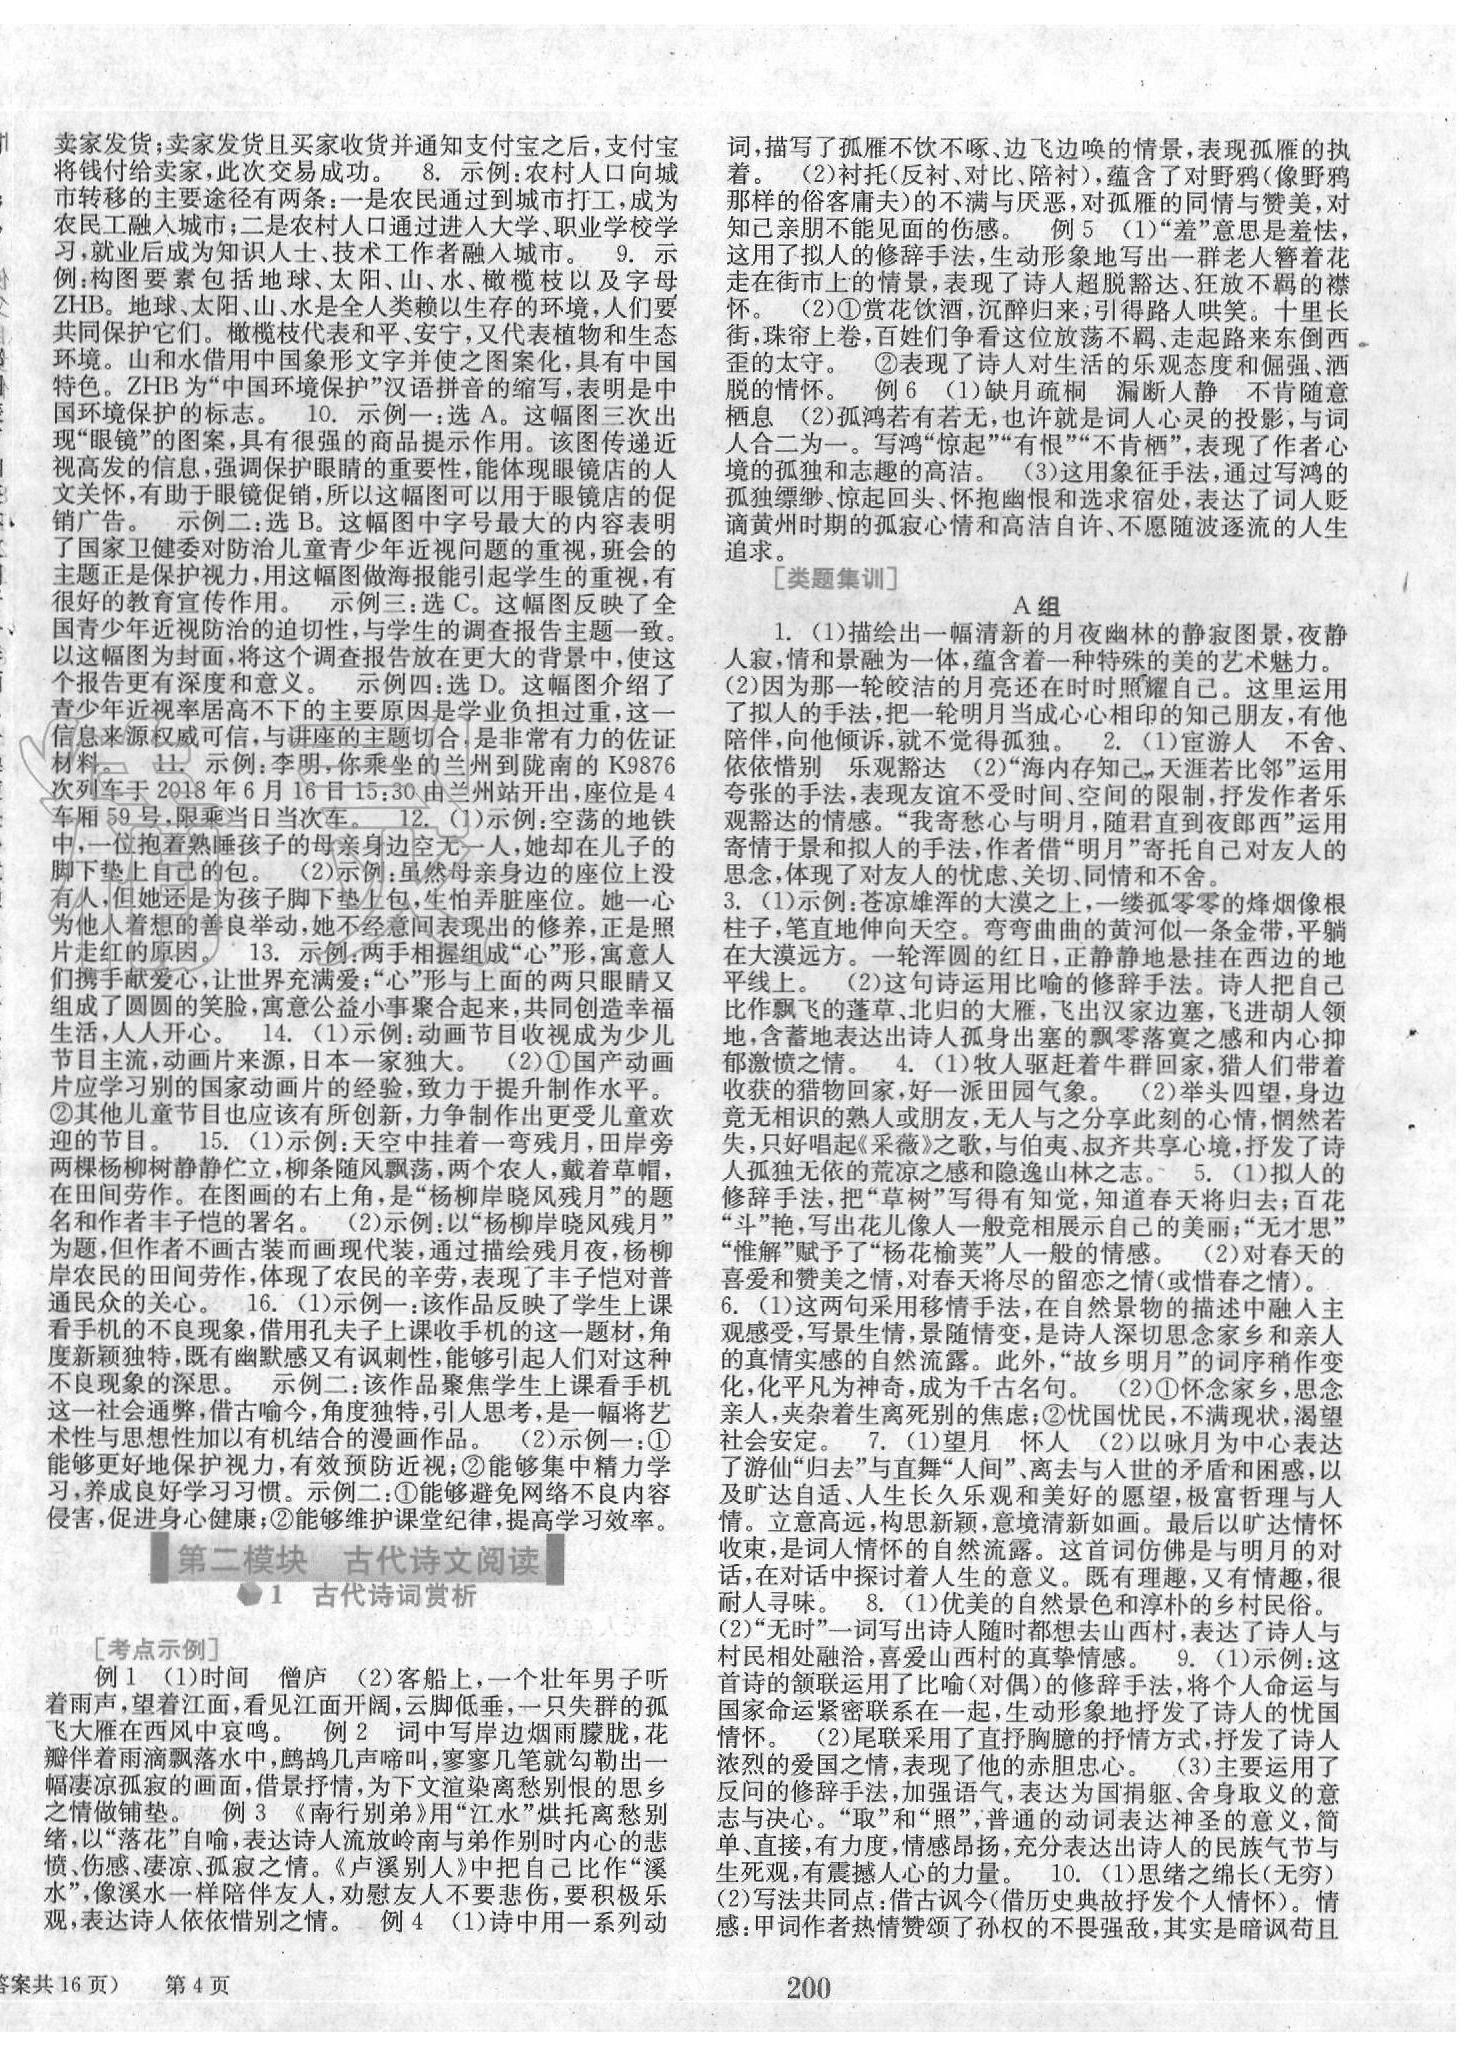 卖家发货;卖家发货且买家收货并通知支付宝之后,支付宝
将钱付给卖家,此次交易成功。 8. 示例:农村人口向城
市转移的主要途径有两条:一是农民通过到城市打工,成为
农民工融入城市;二是农村人口通过进入大学、职业学校学
习,就业后成为知识人士、技术工作者融入城市。 9. 示
例:构图要素包括地球、太阳、山、水、橄榄枝以及字母
ZHB。地球、太阳、山、水是全人类赖以生存的环境,人们要
共同保护它们。橄榄枝代表和平、安宁,又代表植物和生态
环境。山和水借用中国象形文字并使之图案化,具有中国
特色。ZHB为“中国环境保护”汉语拼音的缩写,表明是中
国环境保护的标志。 10. 示例一:选A。这幅图三次出
现“眼镜”的图案,具有很强的商品提示作用。该图传递近
视高发的信息,强调保护眼睛的重要性,能体现眼镜店的人
文关怀,有助于眼镜促销,所以这幅图可以用于眼镜店的促
销广告。 示例二:选B。这幅图中字号最大的内容表明
了国家卫健委对防治儿童青少年近视问题的重视,班会的
主题正是保护视力,用这幅图做海报能引起学生的重视,有
很好的教育宣传作用。 示例三:选C。这幅图反映了全
国青少年近视防治的迫切性,与学生的调查报告主题一致。
以这幅图为封面,将这个调查报告放在更大的背景中,使这
个报告更有深度和意义。 示例四:选D。这幅图介绍了
青少年近视率居高不下的主要原因是学业负担过重,这一
信息来源权威可信,与讲座的主题切合,是非常有力的佐证
材料。 11. 示例:李明,你乘坐的兰州到陇南的K9876
次列车于2018年6月16日15:30由兰州站开出,座位是4
车厢59号,限乘当日当次车。 12. (1)示例:空荡的地铁
中,一位抱着熟睡孩子的母亲身边空无一人,她却在儿子的
脚下垫上自己的包。 (2)示例:虽然母亲身边的座位上没
有人,但她还是为孩子脚下垫上包,生怕弄脏座位。她一心
为他人着想的善良举动,她不经意间表现出的修养,正是照
片走红的原因。 13. 示例:两手相握组成“心”形,寓意人
们携手献爱心,让世界充满爱;“心”形与上面的两只眼睛又
组成了圆圆的笑脸,寓意公益小事聚合起来,共同创造幸福
生活,人人开心。 14. (1)示例:动画节目收视成为少儿
节目主流,动画片来源,日本一家独大。 (2)①国产动画
片应学习别的国家动画片的经验,致力于提升制作水平。
②其他儿童节目也应该有所创新,力争制作出更受儿童欢
迎的节目。 15. (1)示例:天空中挂着一弯残月,田岸旁
两棵杨柳树静静伫立,柳条随风飘荡,两个农人,戴着草帽,
在田间劳作。在图画的右上角,是“杨柳岸晓风残月”的题
名和作者丰子恺的署名。 (2)示例:以“杨柳岸晓风残月”
为题,但作者不画古装而画现代装,通过描绘残月夜,杨柳
岸农民的田间劳作,体现了农民的辛劳,表现了丰子恺对普
通民众的关心。 16. (1)示例一:该作品反映了学生上课
看手机的不良现象,借用孔夫子上课收手机的这一题材,角
度新颖独特,既有幽默感又有讽刺性,能够引起人们对这种
不良现象的深思。 示例二:该作品聚焦学生上课看手机
这一社会通弊,借古喻今,角度独特,引人思考,是一幅将艺
术性与思想性加以有机结合的漫画作品。 (2)示例一:①
能够更好地保护视力,有效预防近视;②能够集中精力学
习,养成良好学习习惯。示例二:①能够避免网络不良内容
侵害,促进身心健康;②能够维护课堂纪律,提高学习效率。
第二模块 古代诗文阅读
1 古代诗词赏析
[考点示例]
例1 (1)时间 僧庐 (2)客船上,一个壮年男子听
着雨声,望着江面,看见江面开阔,云脚低垂,一只失群的孤
飞大雁在西风中哀鸣。 例2 词中写岸边烟雨朦胧,花
瓣伴着雨滴飘落水中,鹧鸪几声啼叫,寥寥几笔就勾勒出一
幅凄凉孤寂的画面,借景抒情,为下文渲染离愁别恨的思乡
之情做铺垫。 例3 《南行别弟》用“江水”烘托离愁别
绪,以“落花”自喻,表达诗人流放岭南与弟作别时内心的悲
愤、伤感、凄凉、孤寂之情。《卢溪别人》中把自己比作“溪
水”,像溪水一样陪伴友人,劝慰友人不要悲伤,要积极乐
观,表达诗人依依惜别之情。 例4 (1)诗中用一系列动
词,描写了孤雁不饮不啄、边飞边唤的情景,表现孤雁的执
着。 (2)衬托(反衬、对比、陪衬),蕴含了对野鸦(像野鸦
那样的俗客庸夫)的不满与厌恶,对孤雁的同情与赞美,对
知己亲朋不能见面的伤感。 例5 (1)“羞”意思是羞怯,
这用了拟人的修辞手法,生动形象地写出一群老人簪着花
走在街市上的情景,表现了诗人超脱豁达、狂放不羁的襟
怀。 (2)①赏花饮酒,沉醉归来;引得路人哄笑。十里长
街,珠帘上卷,百姓们争看这位放荡不羁、走起路来东倒西
歪的太守。 ②表现了诗人对生活的乐观态度和倔强、洒
脱的情怀。 例6 (1)缺月疏桐 漏断人静 不肯随意
栖息 (2)孤鸿若有若无,也许就是词人心灵的投影,与词
人合二为一。写鸿“惊起”“有恨”“不肯栖”,表现了作者心
境的孤独和志趣的高洁。 (3)这用象征手法,通过写鸿的
孤独缥缈、惊起回头、怀抱幽恨和选求宿处,表达了词人贬
谪黄州时期的孤寂心情和高洁自许、不愿随波逐流的人生
追求。
[类题集训]
A组
1. (1)描绘出一幅清新的月夜幽林的静寂图景,夜静
人寂,情和景融为一体,蕴含着一种特殊的美的艺术魅力。
(2)因为那一轮皎洁的月亮还在时时照耀自己。这里运用
了拟人的手法,把一轮明月当成心心相印的知己朋友,有他
陪伴,向他倾诉,就不觉得孤独。 2. (1)宦游人 不舍、
依依惜别 乐观豁达 (2)“海内存知己,天涯若比邻”运用
夸张的手法,表现友谊不受时间、空间的限制,抒发作者乐
观豁达的情感。“我寄愁心与明月,随君直到夜郎西”运用
寄情于景和拟人的手法,作者借“明月”寄托自己对友人的
思念,体现了对友人的忧虑、关切、同情和不舍。
3. (1)示例:苍凉雄浑的大漠之上,一缕孤零零的烽烟像根
柱子,笔直地伸向天空。弯弯曲曲的黄河似一条金带,平躺
在大漠远方。一轮浑圆的红日,正静静地悬挂在西边的地
平线上。 (2)这句诗运用比喻的修辞手法。诗人把自己
比作飘飞的蓬草、北归的大雁,飞出汉家边塞,飞进胡人领
地,含蓄地表达出诗人孤身出塞的飘零落寞之感和内心抑
郁激愤之情。 4. (1)牧人驱赶着牛群回家,猎人们带着
收获的猎物回家,好一派田园气象。 (2)举头四望,身边
竟无相识的熟人或朋友,无人与之分享此刻的心情,惘然若
失,只好唱起《采薇》之歌,与伯夷、叔齐共享心境,抒发了诗
人孤独无依的荒凉之感和隐逸山林之志。 5. (1)拟人的
修辞手法,把“草树”写得有知觉,知道春天将归去;百花
“斗”艳,写出花儿像人一般竞相展示自己的美丽;“无才思”
“惟解”赋予了“杨花榆荚”人一般的情感。 (2)对春天的
喜爱和赞美之情,对春天将尽的留恋之情(或惜春之情)。
6. (1)这两句采用移情手法,在自然景物的描述中融入主
观感受,写景生情,景随情变,是诗人深切思念家乡和亲人
的真情实感的自然流露。此外,“故乡明月”的词序稍作变
化,化平凡为神奇,成为千古名句。 (2)①怀念家乡,思念
亲人,夹杂着生离死别的焦虑;②忧国忧民,不满现状,渴望
社会安定。 7. (1)望月 怀人 (2)以咏月为中心表达
了游仙“归去”与直舞“人间”、离去与入世的矛盾和困惑,以
及旷达自适、人生长久乐观和美好的愿望,极富哲理与人
情。立意高远,构思新颖,意境清新如画。最后以旷达情怀
收束,是词人情怀的自然流露。这首词仿佛是与明月的对
话,在对话中探讨着人生的意义。既有理趣,又有情趣,很
耐人寻味。 8. (1)优美的自然景色和淳朴的乡村民俗。
(2)“无时”一词写出诗人随时都想去山西村,表达了诗人与
村民相处融洽,喜爱山西村的真挚情感。 9. (1)示例:这
首诗的颔联运用了比喻(对偶)的修辞手法,将个人命运与
国家命运紧密联系在一起,生动形象地抒发了诗人的忧国
情怀。 (2)尾联采用了直抒胸臆的抒情方式,抒发了诗人
浓烈的爱国之情,表现了他的赤胆忠心。 (3)主要运用了
反问的修辞手法,加强语气,表达为国捐躯、舍身取义的意
志与决心。“取”和“照”,普通的动词表达神圣的意义,简
单、直接,有力度,情感昂扬,充分表达出诗人的民族气节与
生死观,有震撼人心的力量。 10. (1)思绪之绵长(无穷)
(2)写法共同点:借古讽今(借历史典故抒发个人情怀)。情
感:甲词作者热情赞颂了孙权的不畏强敌,其实是暗讽苟且
答案共16页) 第4页
200